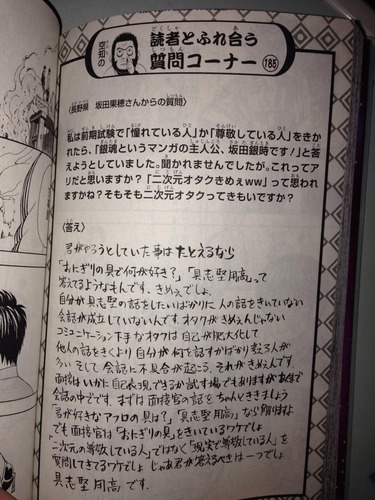 空知の
読者とふれ合う
質問コーナー 185
〈長野県 坂田果穂さんからの質問〉
私は前期試験で「憧れている人」か「尊敬している人」をきか
れたら、「銀魂というマンガの主人公、坂田銀時です!」と答
えようとしていました。聞かれませんでしたが。これってア
リだと思いますか?「二次元オタクきめぇww」って思われ
ますかね?そもそも二次元オタクってきもいですか?
〈答え〉
君がやろうとしていた事は たとえるなら
「おにぎりの具で何が好き?」「具志堅用高」って
答えてるようなもんです、きめぇでしょ。
自分が具志堅の話をしたいばかりに 人の話をきいていない
会話が成立していないんです。オタクがきめぇんじゃない
コミュニケーション下手なオタクは自己が肥大化して
他人の話をきくより 自分が何を話すかばかり考える人が
多い そして 会話に不具合が起こる それがきめぇんです
面接はいかに自己表現できるか試す場でもありますがあくまで
会話の中でです。まずは面接官の話をちゃんとききましょう
「君が好きなアフロの具は?」「具志堅用高」なら
でも面接官は「おにぎりの具」をきいているワケでしょ
二次元の尊敬している人」ではなく「現実で尊敬している人」を
質問してきてるワケでしょ じゃあ君が答えるべきは一つでしょ
具志堅用高です。